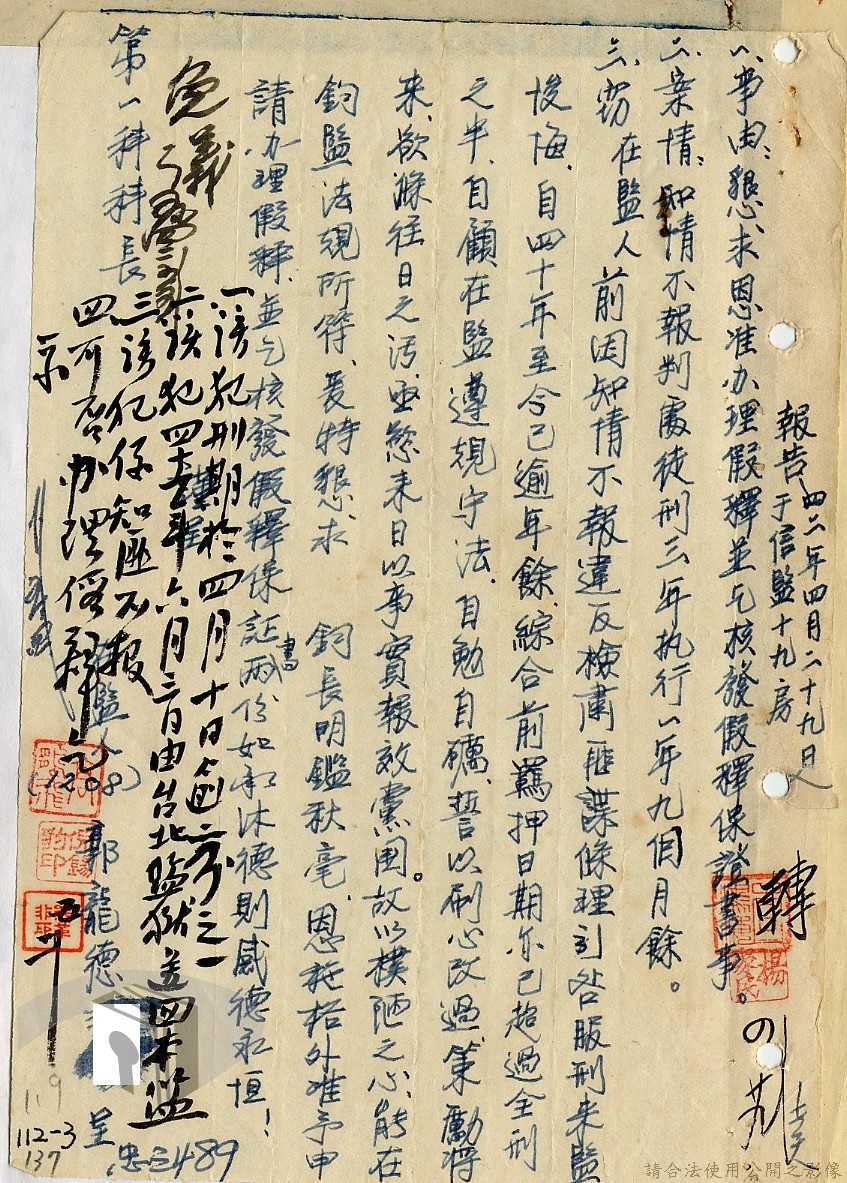 報告 四二年四月二十九日
于信監十九房
一、事由：懇求恩准办理假釋並乞核發假釋保證書事。
二、案情：知情不報判處徒刑三年执行一年九個月餘。
三、窃在監人前因知情不報違反檢肅匪諜條理刻咎服刑來監
悛悔、自四十年至今已逾年餘、綜合前羈押日期亦已超過全刑
之半、自顧在監遵規守法、自勉自礪、誓以刷心改過、策勵將
来、欲滌往日之污、亟慾来日以事實報效黨国。故以樸陋之心、能在
鈞監法規所符、爰特懇求 鈞長明鑑秋毫、恩拯格外准予申
請办理假釋、並乞核發假釋保証書兩份如承沐德則感德永恒！
謹呈
第一科科長
在監人(1208) 郭龍德 呈
轉
楊
一、該犯刑期於四月十日逾二分之一
二、該犯四十年六月三日由台北監獄送回本監
三、該犯係知匪不报
四、可否办理假釋乞
示
119
112-3
137
489
請合法使用公開之影像